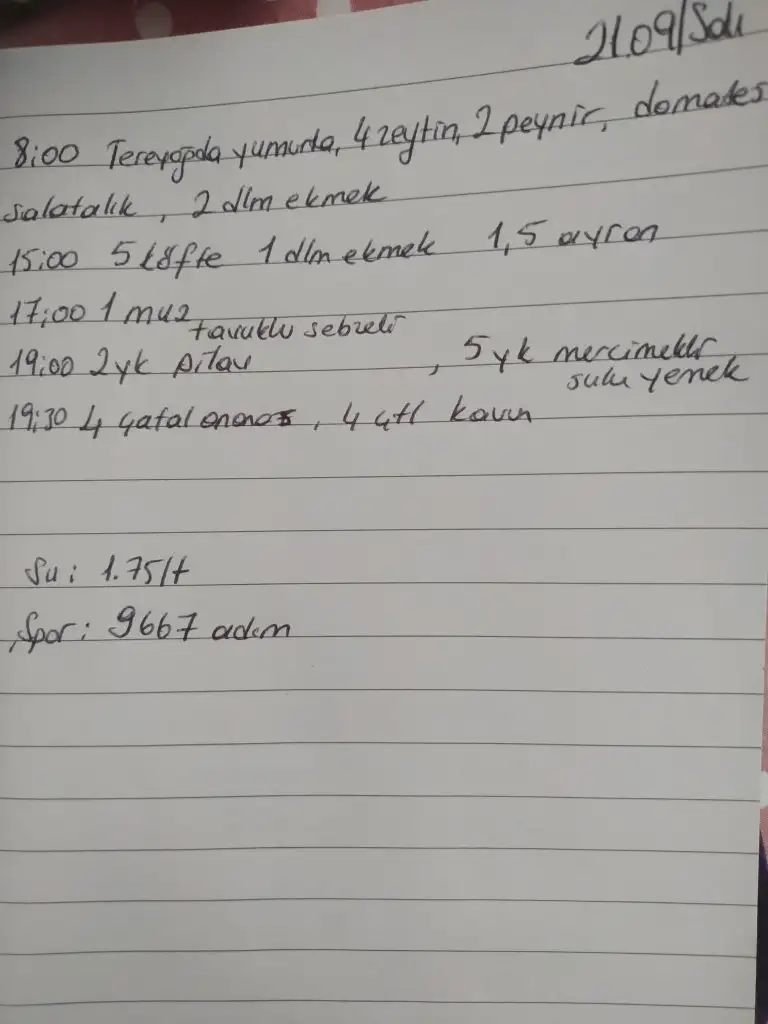 21.09/Salı
8:00 Tereyağda yumurta, 4 zeytin, 2 peynir, domates
salatalık, 2 dlm ekmek
15:00 5 köfte 1 dlm ekmek 1,5 ayran
17:00 1 muz
tavuklu sebzeli
19:00 2yk pilav , 5 yk mercimekli
sulu yemek
19:30 4 çatal ananas, 4 çtl kavun
Su: 1.75lt
Spor: 9667 adım